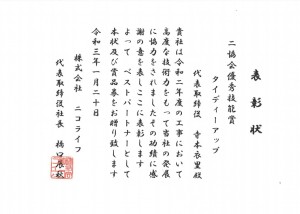 表彰状
二協会優秀技能賞
タイディーアップ
代表取締役 寺本衣里殿
貴社は令和二年度の工事において
高度な技術力をもって当社の発展
に協力をされましたその功績に感
謝の意を表しここに表彰します
よって ベストパートナーとして
本状及び賞品券をお贈り致します
令和三年一月二十日
株式会社 ニコライフ
代表取締役社長 橋口